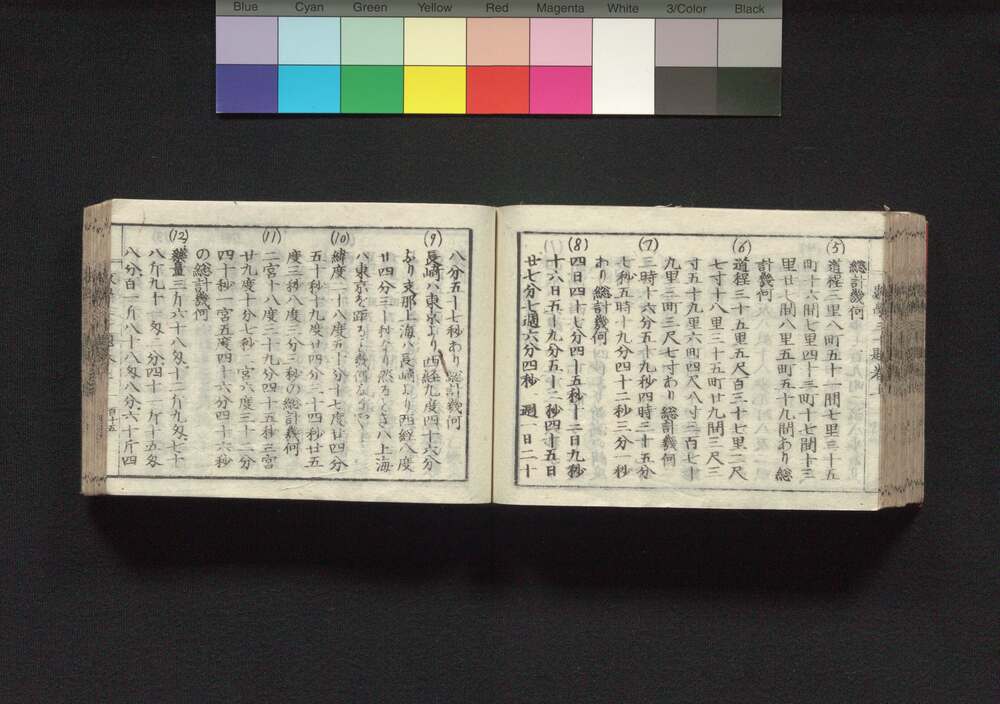 Blue Cyan Green Yellow Red Magenta White 3/Color Black
総計幾何
(5) 道程三里八町五十一間七里三十五
町十六間七里四十三町十七間十三
里廿七間八里五町五十九間あり総
計幾何
(6) 道程三十五里五尺百三十七里二尺
七寸十八里三十五町廿九間三尺三
寸五十九里六町四尺八寸三百七十
九里三町三尺七寸あり総計幾何
(7) 三時十六分五十九秒四時三十五分
七秒五時十九分四十二秒三分一秒
あり総計幾何
(8) 四日四十七分四十五秒十二日九秒
十六日五十九分五十二秒四十五日
廿七分七週六分四秒一週一日二十
八分五十七秒あり総計幾何
(9) 長崎ハ東京より西経九度四十六分
より支那上海ハ長崎より西経八度
廿四分三十
ハ東京を距る
(10) 緯度二十八度五十分十七度廿四分
五十秒十九度廿四分三十四秒廿五
度三秒八度三分三秒の総計幾何
(11) 二宮十八度二十九分四十五秒三宮
廿九度十分七秒一宮六度三十二分
四十秒一宮五度四十六分四十六秒
の総計幾何
(12) 量三斤六十八匁十二斤九匁七十
八斤九十一匁二分四十一斤十五匁
八分百一斤八十八匁八分六十斤四